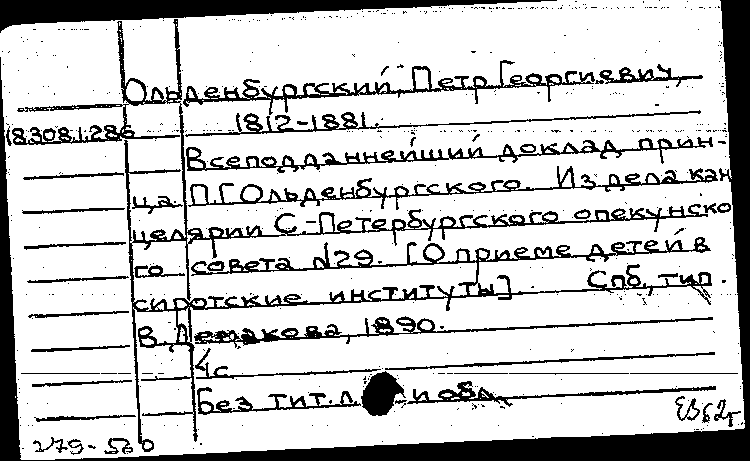 Ольденбургский, Петр Георгиевич,
18.308.1.286 1812-1881.
Всеподданнейший доклад прин-
ца П.Г Ольденбургского. Из дела кан
целярии С.-Петербургского опекунско
го совета №29. [О приеме детей в
сиротские институты] Спб, тип.
В. Демакова, 1890.
4с
Без тит. л. и обл.
279-560